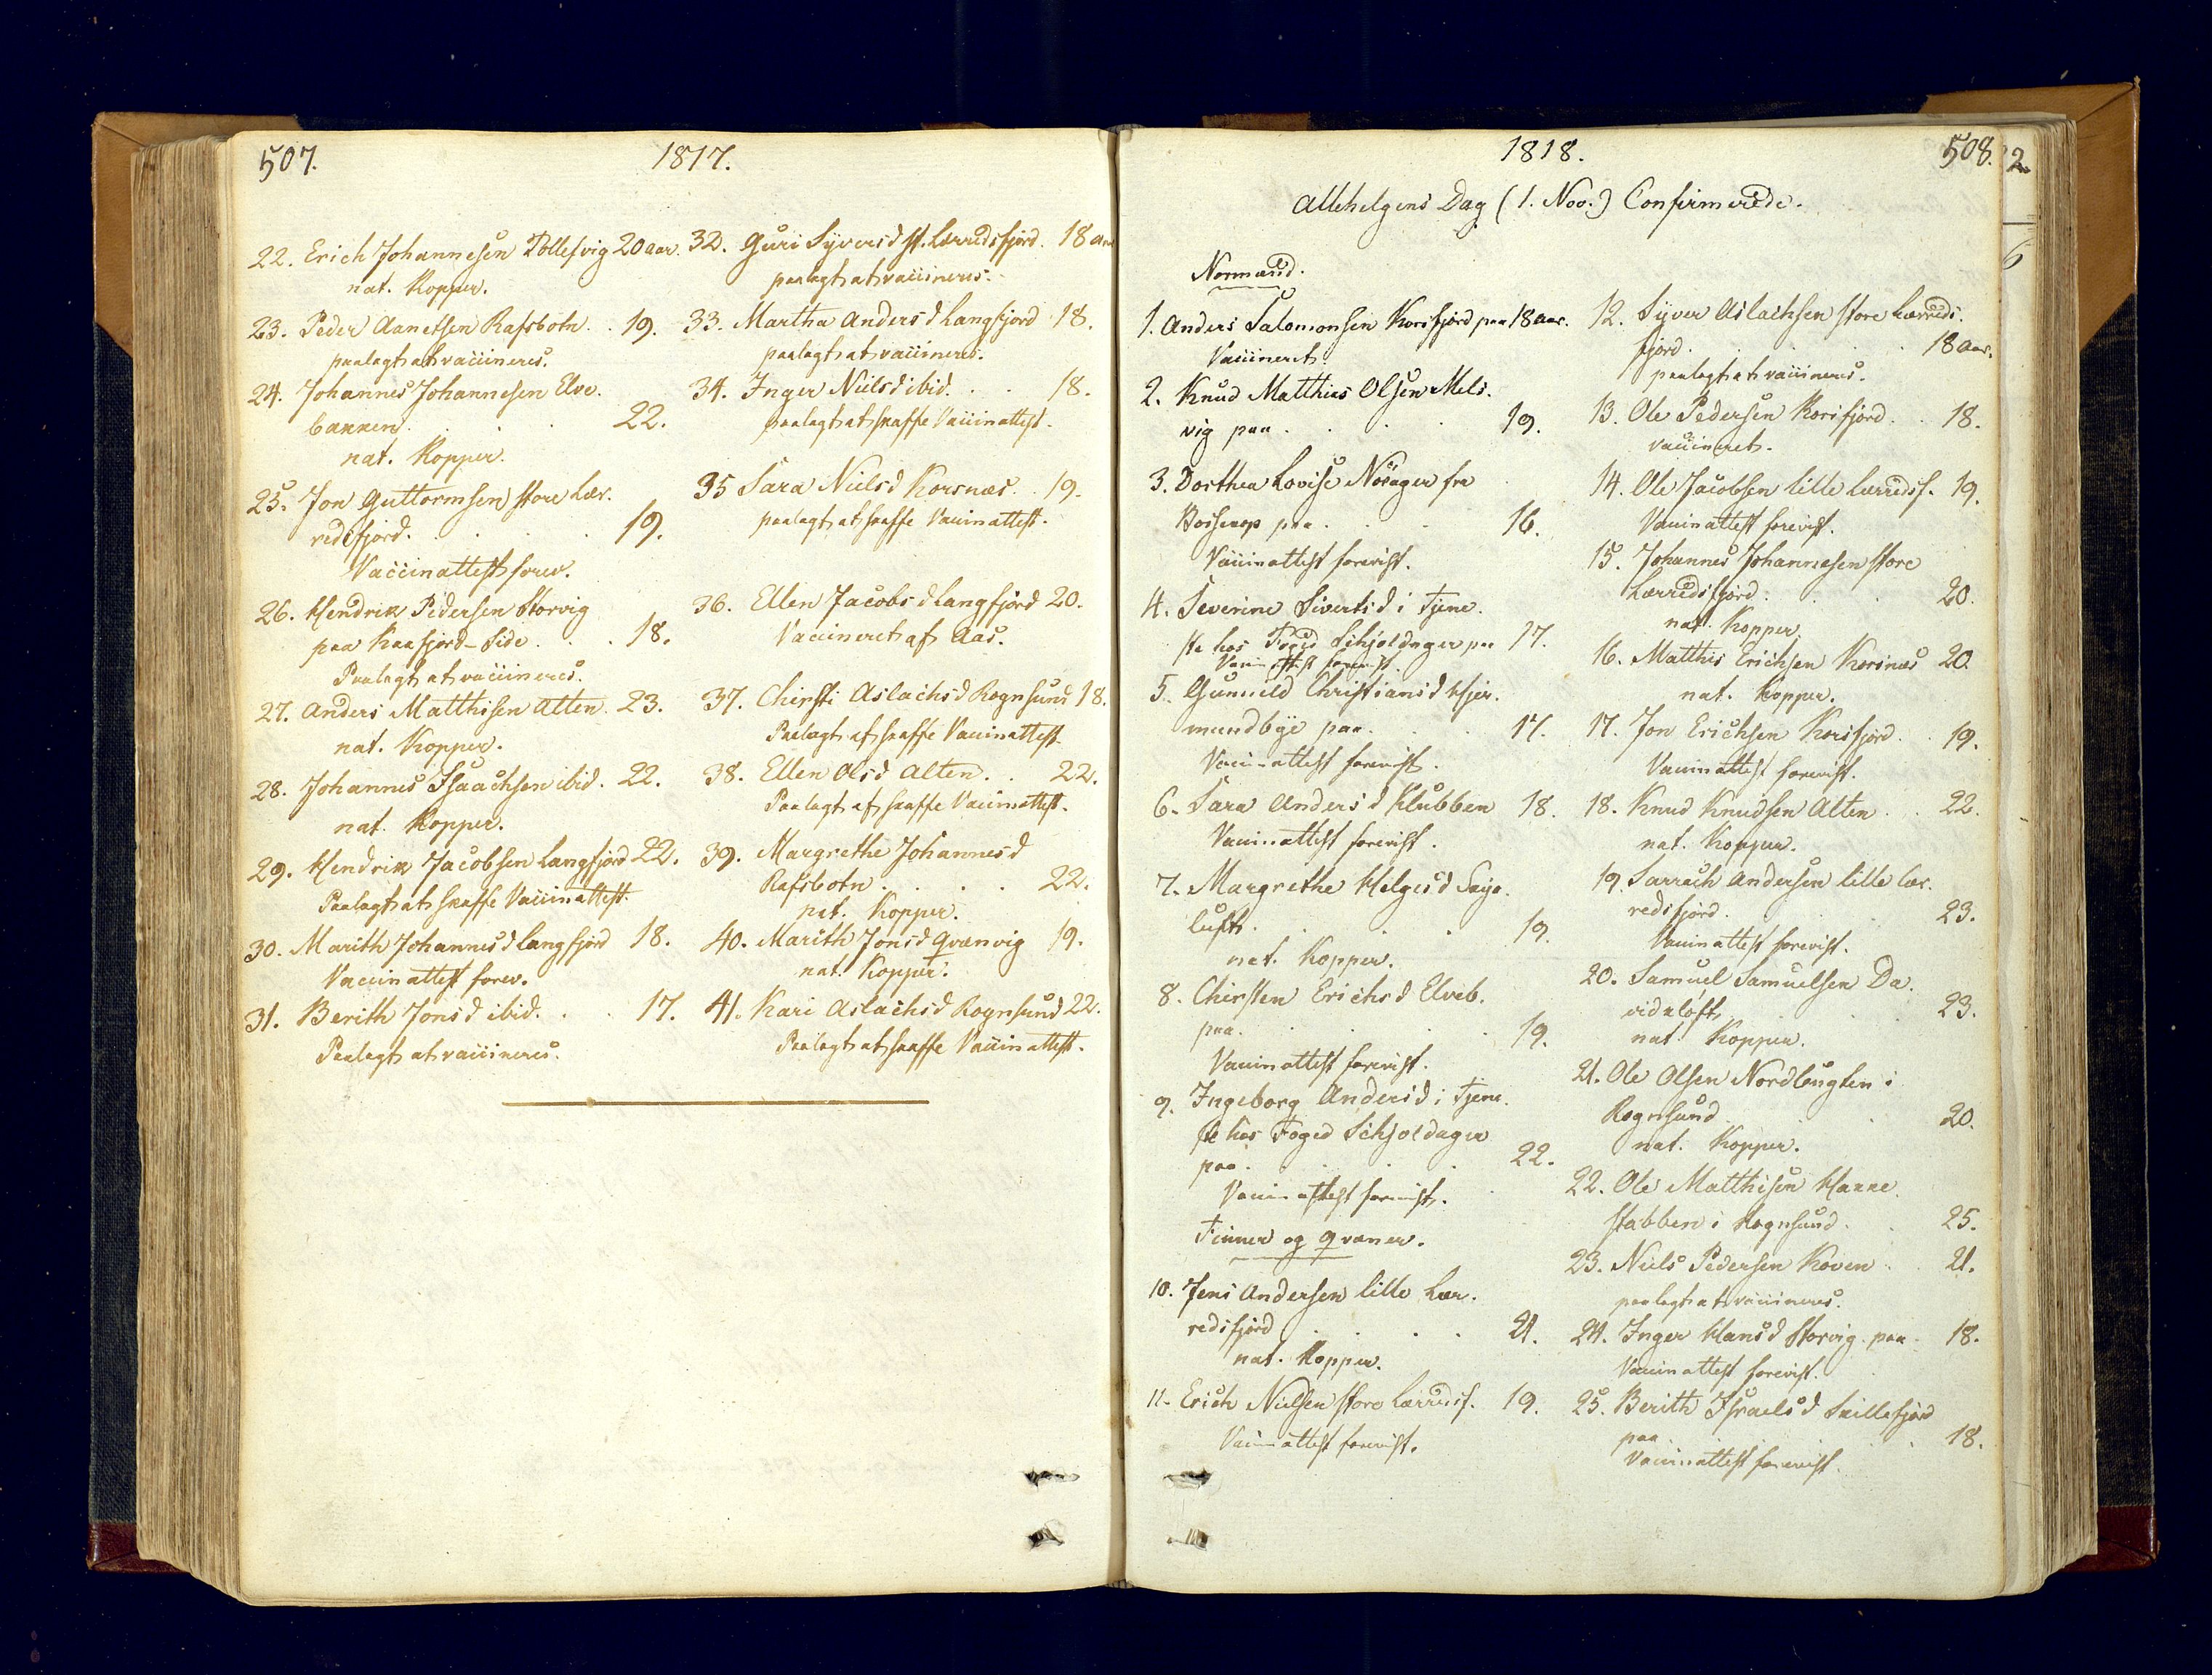 507.
1817.
22. Erich Johannesen Tollefvig 20 aar.
nat. Kopper.
23. Peder Aanetsen Rafsbotn . . 19.
paalagt at vaccineres.
24. Johannes Johannesen Elve-
bakken . . . . 22.
nat. Kopper.
25. Jon Guttormsen store Lær-
redsfjord . . . . 19.
Vaccinattest forev.
26. Hendrik Pedersen Storvig
paa Kaafjord-Side . . . 18.
Paalagt at vaccineres.
27. Anders Matthisen Alten . 23.
nat. Kopper.
28. Johannes Isaachsen ibid. . 22.
nat. Kopper.
29. Hendrik Jacobsen Langfjord 22.
Paalagt at skaffe Vaccinattest.
30. Marith Johannesd Langfjord 18.
Vaccinattest forev.
31. Berith Jonsd ibid. . . . 17.
Paalagt at vaccineres.
32. Guri Syversd st. Lærredsfjord. 18 aar
paalagt at vaccineres.
33. Martha Andersd Langfjord 18.
paalagt at vaccineres.
34. Inger Nielsd ibid. . . 18.
paalagt at skaffe Vaccinattest.
35 Sara Nielsd Korsnæs . . 19.
paalagt at skaffe Vaccinattest.
36. Ellen Jacobsd Langfjord 20.
Vaccineret af Aas.
37. Chirsti Aslachsd Rognsund 18.
Paalagt at skaffe Vaccinattest.
38. Ellen Olsd Alten . . 22.
Paalagt at skaffe Vaccinattest.
39. Margrethe Johannesd
Rafsbotn . . . . 22.
nat. Kopper.
40. Marith Jonsd Qvænvig 19.
nat. Kopper.
41. Kari Aslachsd Rognsund 22.
Paalagt at skaffe Vaccinattest.
1818.
508.
Allehelgens Dag (1. Nov.) Confirmerede.
Normænd.
1. Anders Salomonsen Korsfjord paa 18 aar.
Vaccineret.
2. Knud Matthias Olsen Mels-
vig paa . . . . 19.
3. Dorthea Lovise Nösager fra
Bossekop paa . . . 16.
Vaccinattest forevist.
4. Severine Sivertsd i Tjene-
ste hos Foged Schjoldager paa 17.
Vaccinattest forevist.
5. Gunnild Christiansd Hjer-
mundbye paa . . . 17.
Vaccinattest forevist.
6. Sara Andersd Klubben 18.
Vaccinattest forevist.
7. Margrethe Helgesd
luft . . . . 19.
nat. Kopper.
8. Chirsten Erichsd Elveb.
paa . . . . 19.
Vaccinattest forevist.
9. Ingeborg Andersd i Tjene-
ste hos Foged Schjoldager
paa . . . . 22.
Vaccinattest forevist.
Finner og Qvæner.
10. Jens Andersen lille Lær-
redsfjord . . . . 21.
nat. Kopper.
11. Erich Nielsen store Lærredsf. 19.
Vaccinattest forevist.
12. Syver Aslachsen store Lærreds-
fjord . . . . 18 aar.
paalagt at vaccineres.
13. Ole Pedersen Korsfjord . . 18.
vaccineret.
14. Ole Jacobsen lille Lærredsf. 19.
Vaccinattest forevist.
15. Johannes Johannesen store
Lærredsfjord . . . 20.
nat. Kopper.
16. Matthis Erichsen Korsnæs 20.
nat. Kopper.
17. Jon Erichsen Korsfjord . . 19.
Vaccinattest forevist.
18. Knud Knudsen Alten . . 22.
nat. Kopper.
19. Sarrach Andersen lille Lær-
redsfjord . . . 23.
Vaccinattest forevist.
20. Samuel Samuelsen Da-
vidsloft . . . . 23.
nat. Kopper.
21. Ole Olsen Nordbugten i
Rognsund . . . 20.
nat. Kopper.
22. Ole Matthisen Hane-
stabben i Rognsund . . 25.
23. Niels Pedersen Koven . . 21.
paalagt at vaccineres.
24. Inger Hansd Storvig paa . 18.
Vaccinattest forevist.
25. Berith Israelsd Skillefjord
paa . . . . 18.
Vaccinattest forevist.